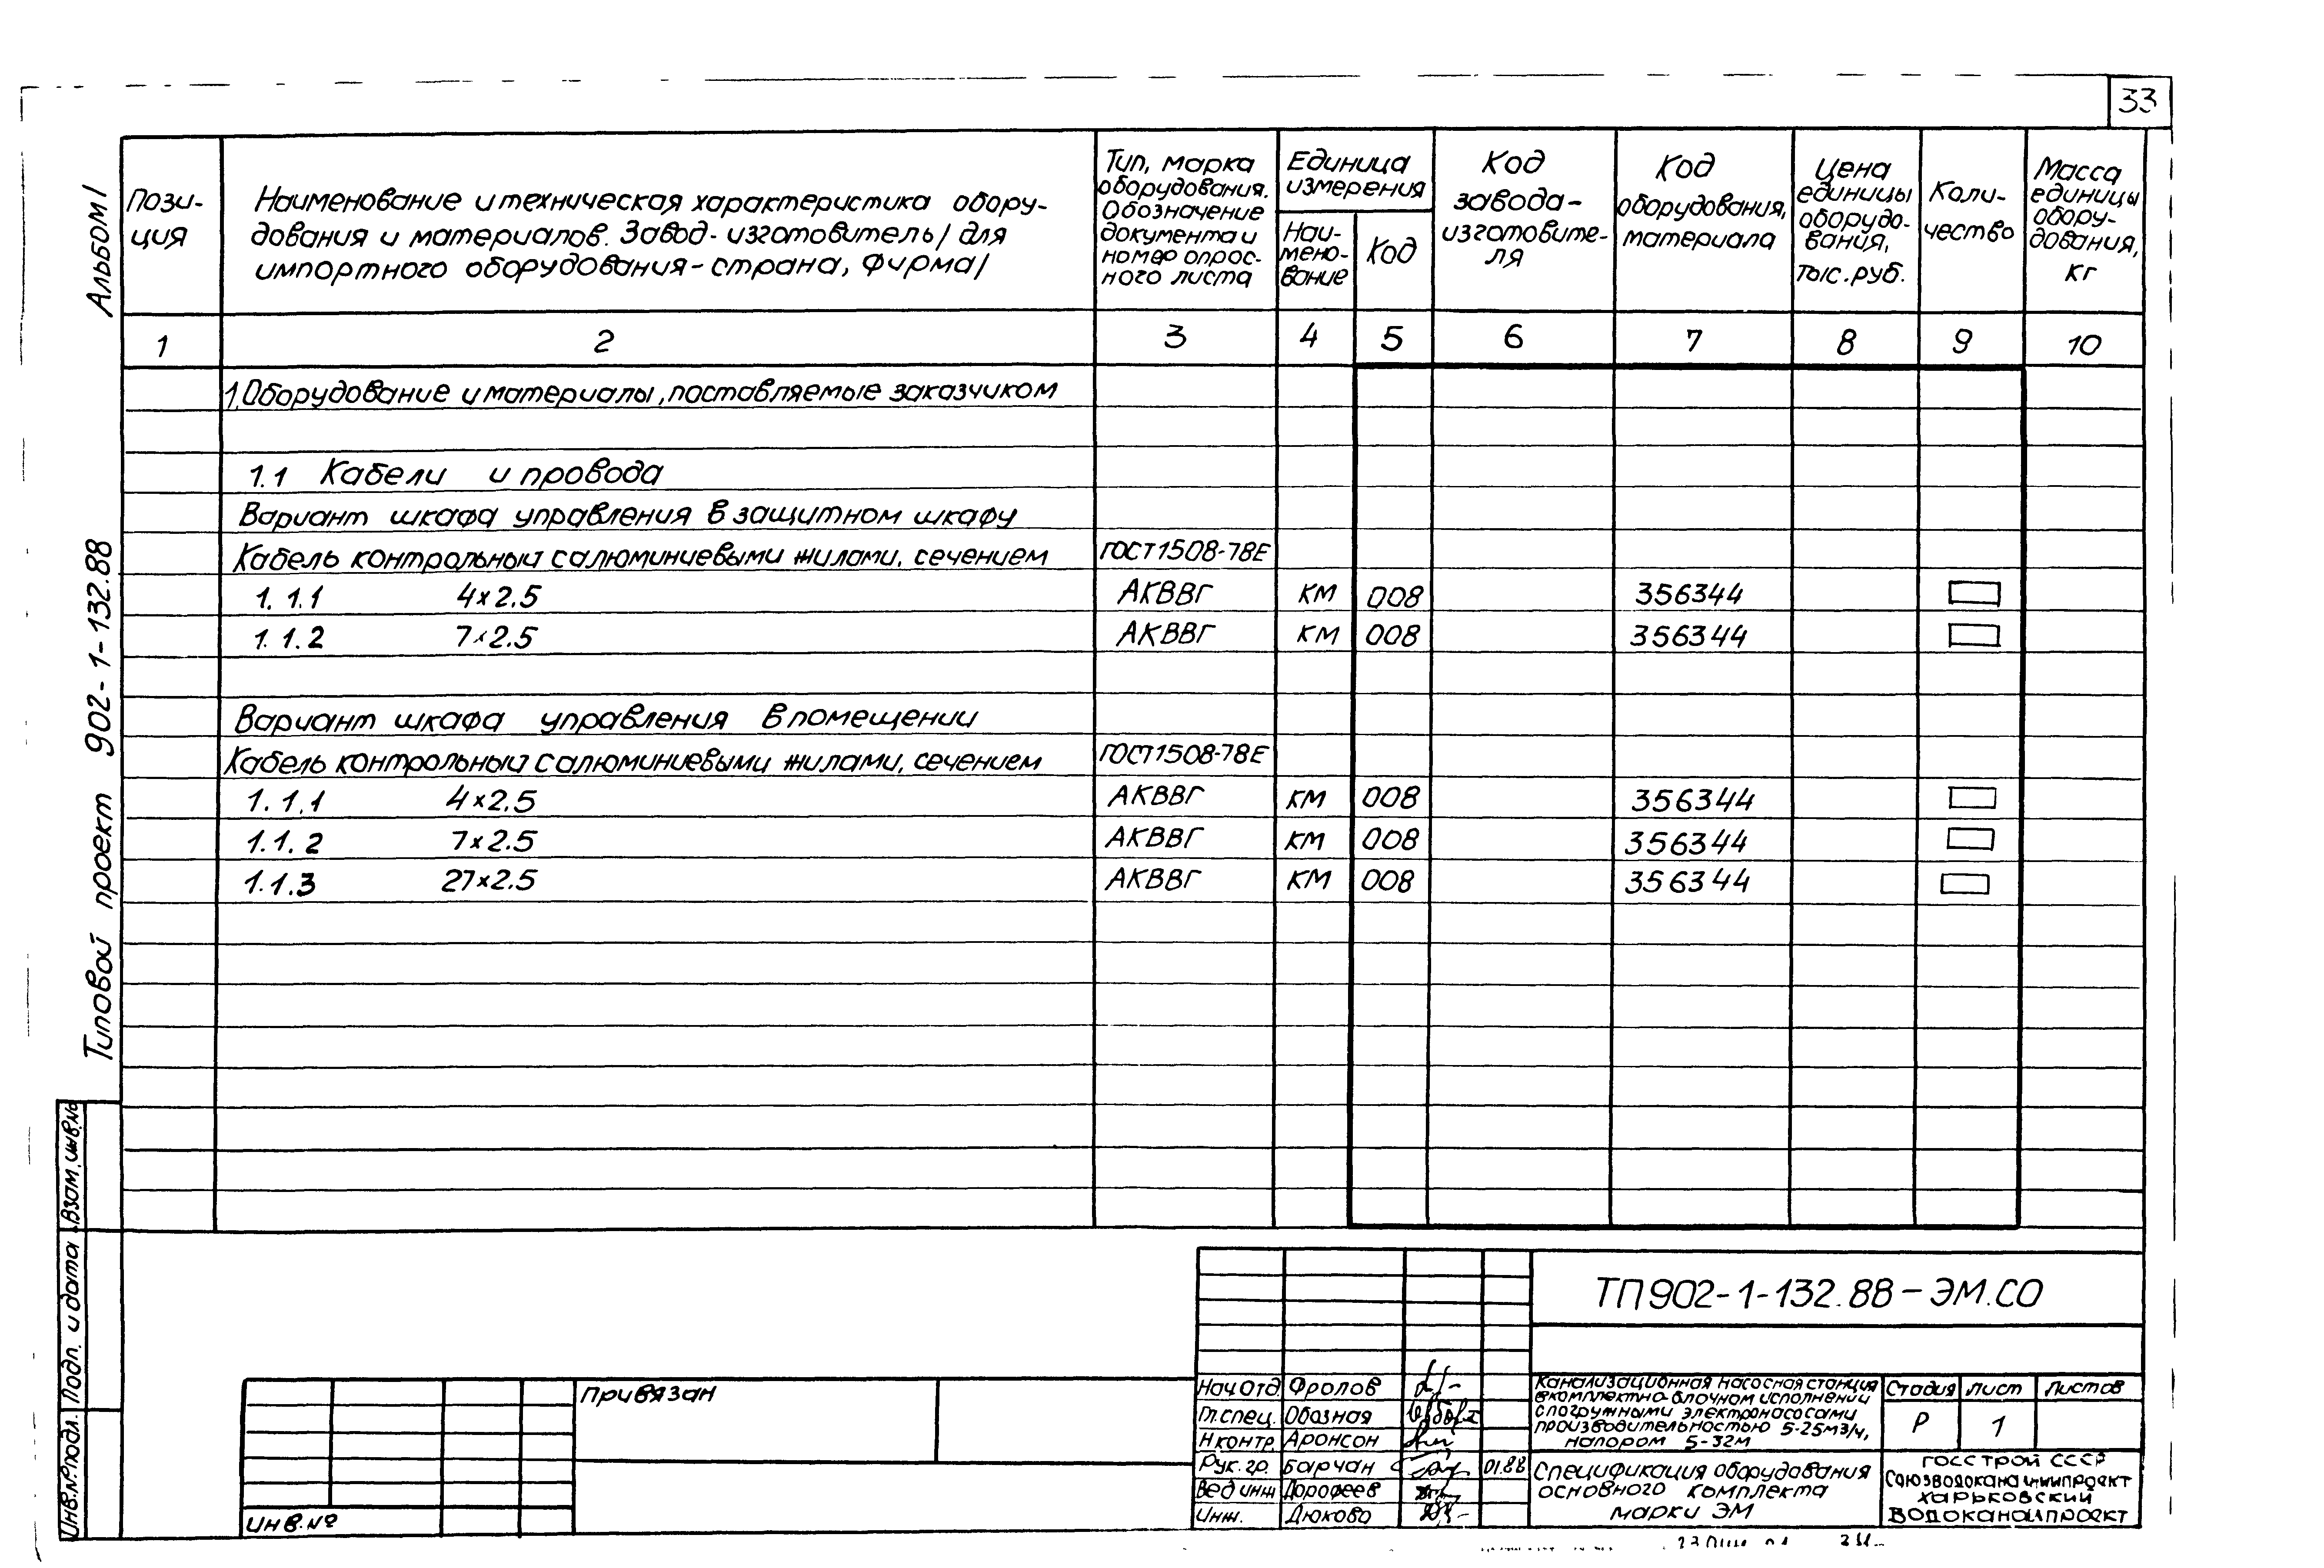 33
Альбом I
Типовой проект 902-1-132.88
Пози-
ция
Наименование и техническая характеристика обору-
дования и материалов. Завод-изготовитель/для
импортного оборудования-страна, фирма/
Тип, марка
оборудования.
Обозначение
документа и
номер опрос-
ного листа
Единица
измерения
Наи-
мено-
вание
Код
Код
завода-
изготовите-
ля
Код
оборудования,
материала
Цена
единицы
оборудо-
вания,
тыс.руб.
Коли-
чество
Масса
единицы
обору-
дования,
кг
1 2 3 4 5 6 7 8 9 10
1. Оборудование и материалы, поставляемые заказчиком
1.1 Кабели и провода
Вариант шкафа управления в защитном шкафу
Кабель контрольный с алюминиевыми жилами, сечением ГОСТ1508-78Е
1.1.1 4х2.5 АКВВГ КМ 008 356344
1.1.2 7х2.5 АКВВГ КМ 008 356344
Вариант шкафа управления в помещении
Кабель контрольный с алюминиевыми жилами, сечением ГОСТ1508-78Е
1.1.1 4х2.5 АКВВГ КМ 008 356344
1.1.2 7х2.5 АКВВГ КМ 008 356344
1.1.3 27х2.5 АКВВГ КМ 008 356344
Взам.инв.№
Подп. и дата
Инв.№подл.
Привязан
Инв.№
Нач Отд. Фролов
Гл.спец. Обозная
Н контр. Аронсон
Рук.гр. Барчан 01.88
Вед инж Дорофеев
Инж. Дюкова
ТП902-1-132.88-ЭМ.СО
Канализационная насосная станция
в комплектно-блочном исполнении
с погружными электронасосами
производительностью 5-25м3/ч,
напором 5-32м
Стадия Лист Листов
Р 1
Спецификация оборудования
основного комплекта
марки ЭМ
ГОССТРОЙ СССР
Союзводоканалниипроект
Харьковский
Водоканалпроект